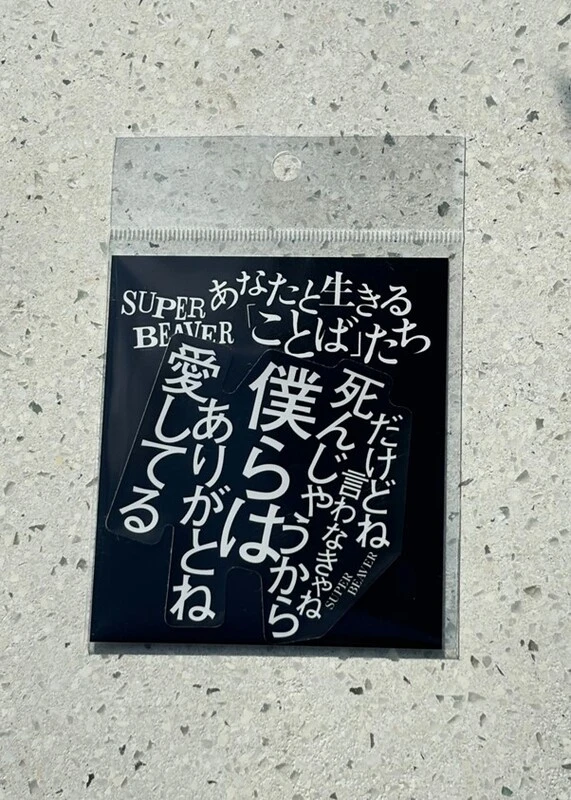 SUPER
BEAVER
あなたと生きる
「ことば」たち
だけどね
言わなきゃね
死んじゃうから
僕らは
ありがとね
愛してる
SUPER
BEAVER